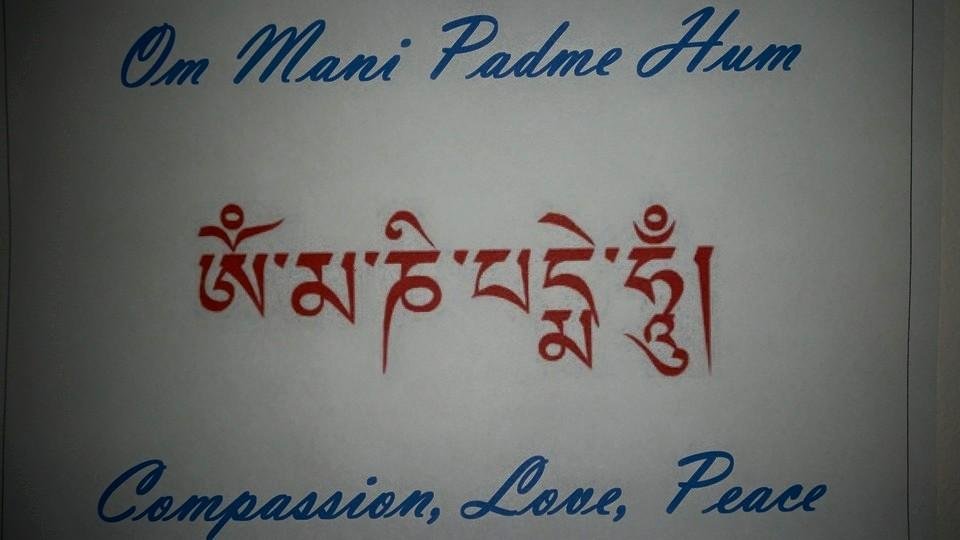 Om Mani Padme Hum
ཨོཾ་མ་ཎི་པདྨེ་ཧཱུྃ།
Compassion, Love, Peace